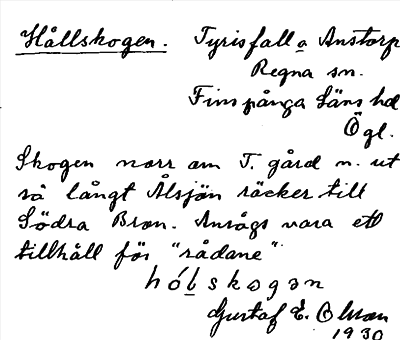 Hållskogen. Tyrisfall o Anstorp
Regna sn.
Finspånga läns hd
Ögl.
Skogen norr om T. gård n. ut
så långt Ålsjön räcker till
Södra Bron. Ansågs vara ett
tillhåll för "rådane".
hó̱lskogən
Gustaf E. Olsson
1930